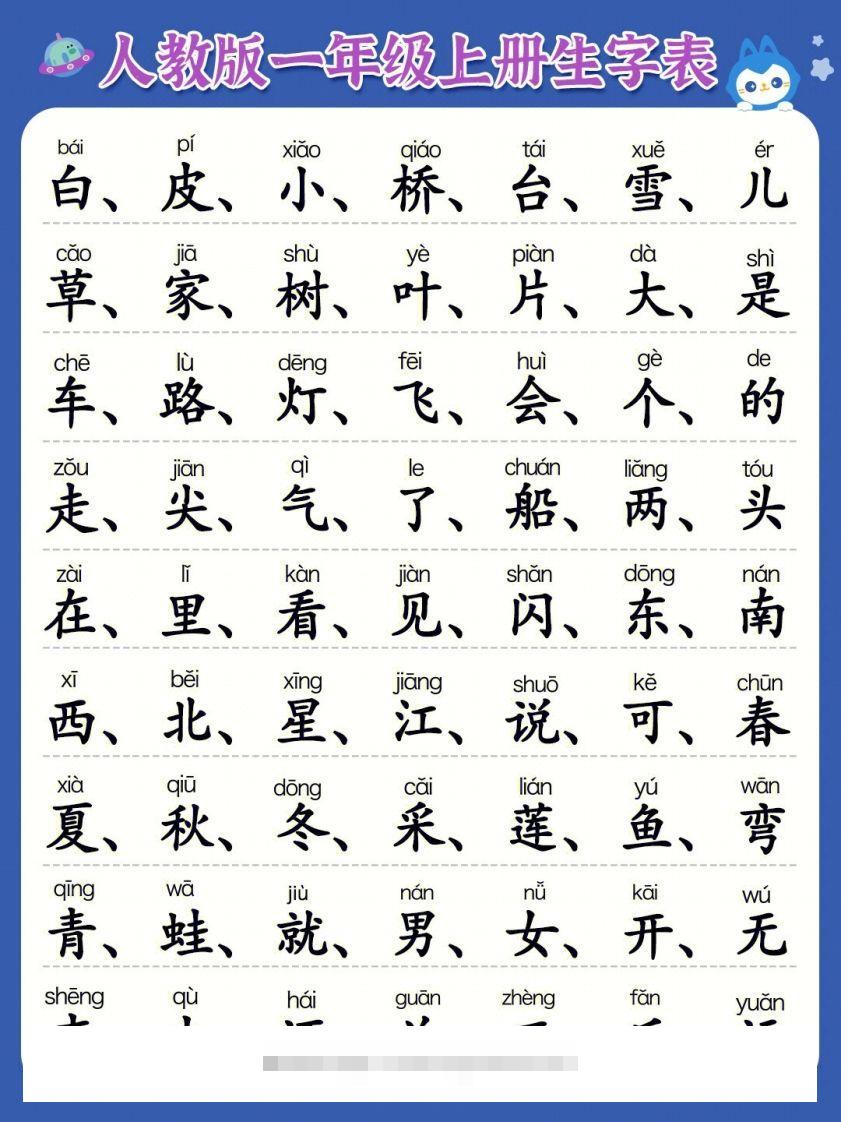 人教版一年级上册生字表
bái pí xiǎo qiáo tái xuě ér
白、皮、小、桥、台、雪、儿
cǎo jiā shù yè piàn dà shì
草、家、树、叶、片、大、是
chē lù dēng fēi huì gè de
车、路、灯、飞、会、个、的
zǒu jiān qì le chuán liǎng tóu
走、尖、气、了、船、两、头
zài lǐ kàn jiàn shǎn dōng nán
在、里、看、见、闪、东、南
xī běi xīng jiāng shuō kě chūn
西、北、星、江、说、可、春
xià qiū dōng cǎi lián yú wān
夏、秋、冬、采、莲、鱼、弯
qīng wā jiù nán nǚ kāi wú
青、蛙、就、男、女、开、无
shēng qù hái guān zhèng fǎn yuǎn